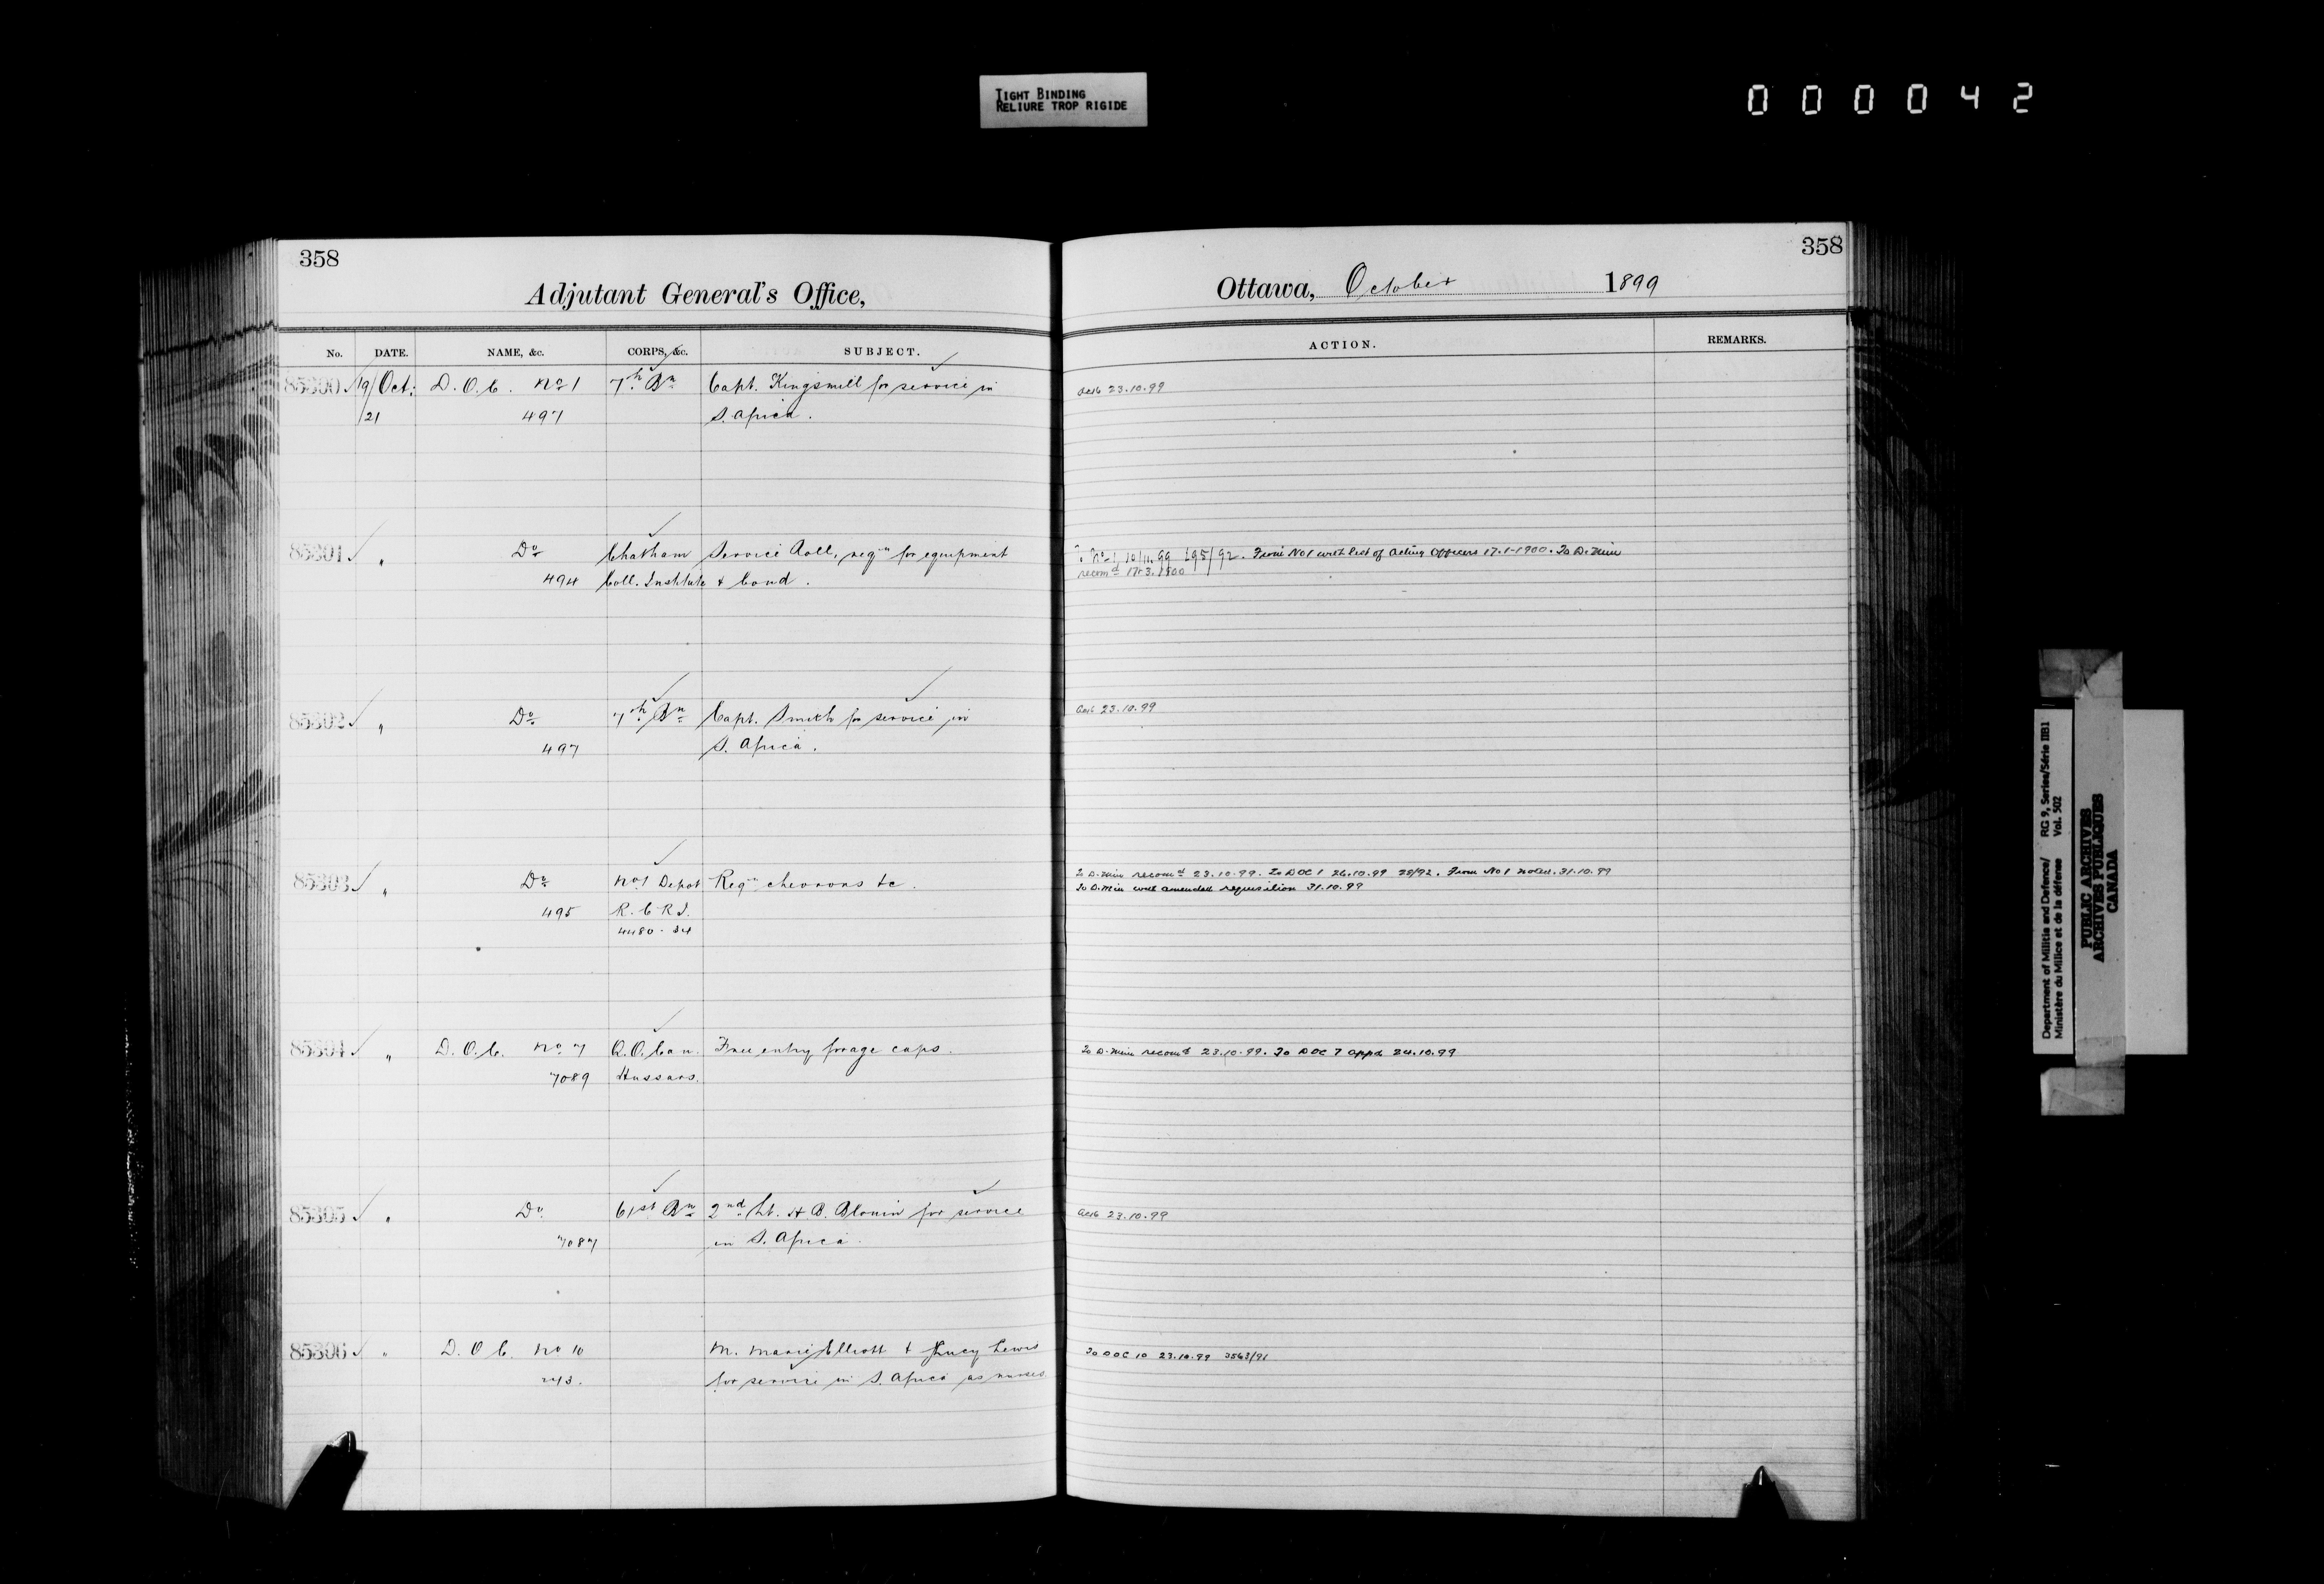 TIGHT BINDING
RELIURE TROP RIGIDE
000042
358
Adjutant General's Office,
No. DATE. NAME, &c. CORPS, &c. SUBJECT.
85300 19/Oct: D.O.C. No 1 7th Bn Capt. Kingsmill for service in
/21 497 S. Africa.
85301 " Do Chatham Service Roll, reqn for equipment
494 Coll. Institute & Cond.
85302 " Do 7th Bn Capt. Smith for service in
497 S. Africa.
85303 " Do No 1 Depot Reqn chevrons &c.
495 R.C.R.I.
4480-
85304 " D.O.C. No 7 Q.O. Can. Free entry forage caps.
7089 Hussars.
85305 " Do 61st Bn 2nd Lt. H B. Blouin for service
7087 in S. Africa.
85306 " D.O.C. No 10 M. Marie Elliott & Lucy Lewis
for service in S. Africa as nurses
358
Ottawa, October 1899
ACTION. REMARKS.
23.10.99
No 1 10/11.99 195/92. From No 1 with list of Acting Officers 17-1-1900. To D. Min
recomd 1900
23.10.99
To D. Min recomd 23.10.99. To DOC 1 26.10.99 28/92. From No 1 noted. 31.10.99
To D. Min with amended requisition 31.10.99
To D. Min recomd 23.10.99. To DOC 7 appd 24.10.99
23.10.99
To DOC 10 23.10.99 3563/91
Department of Militia and Defence/ RG 9, Series/Série IIB1
Ministère du Milice et de la défense Vol. 502
PUBLIC ARCHIVES
ARCHIVES PUBLIQUES
CANADA